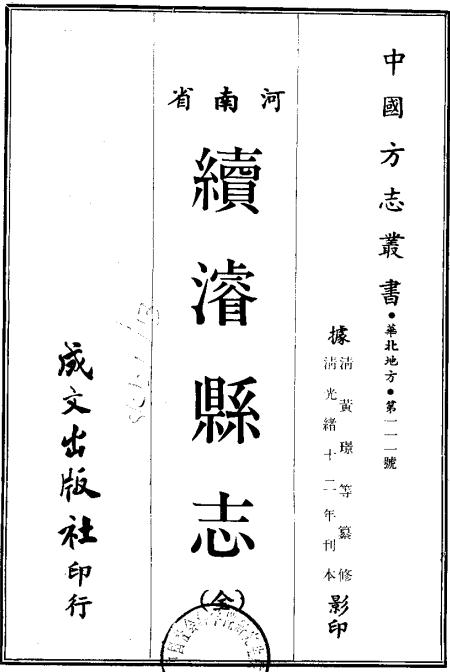 中國方志叢書•華北地方•第一一一號
據清光緒十二年刊本影印
清黃璟等纂修
河南省
續濬縣志
(全)
成文出版社印行